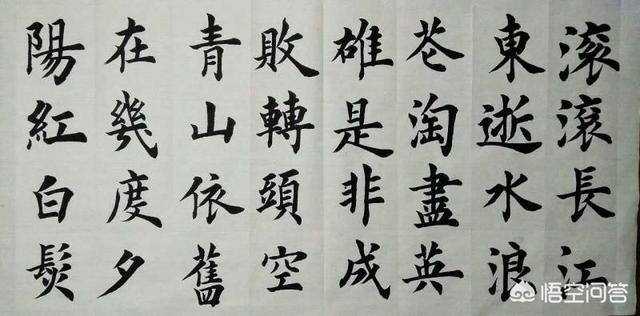 滚滚長江
東逝水浪
花淘盡英
雄是非成
敗轉頭空
青山依舊
在幾度夕
陽紅白髮
悟空问答